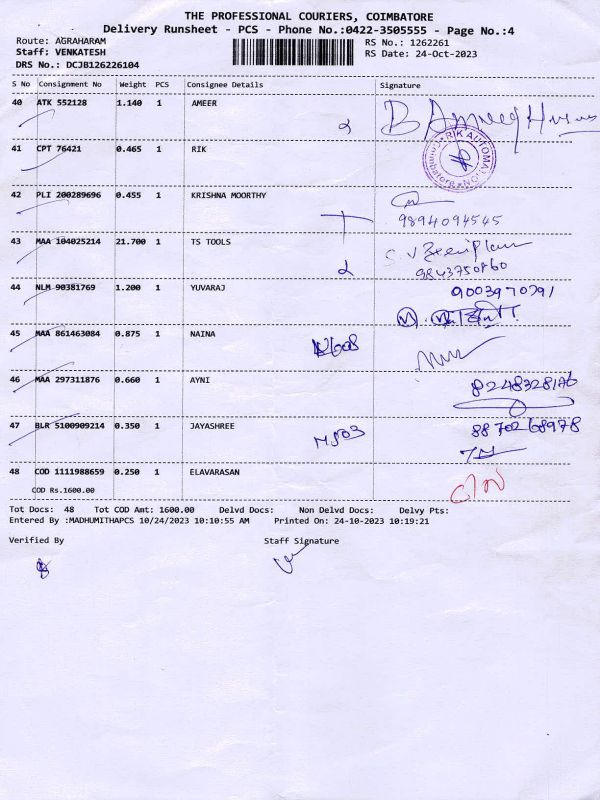 THE PROFESSIONAL COURIERS, COIMBATORE
Delivery Runsheet - PCS - Phone No.:0422-3505555 - Page No.:4
Route: AGRAHARAM RS No.: 1262261
Staff: VENKATESH RS Date: 24-Oct-2023
DRS No.: DCJB126226104
S No Consignment No Weight PCS Consignee Details Signature
40 ATK 552128 1.140 1 AMEER
41 CPT 76421 0.465 1 RIK
RIK AUTOMA
Coimbatore
42 PLI 200289696 0.455 1 KRISHNA MOORTHY
9894094545
43 MAA 104025214 21.700 1 TS TOOLS
9843750860
44 NLM 90381769 1.200 1 YUVARAJ 9003970791
45 MAA 861463084 0.875 1 NAINA
46 MAA 297311876 0.660 1 AYNI
47 BLR 5100909214 0.350 1 JAYASHREE 8870268978
48 COD 1111988659 0.250 1 ELAVARASAN
COD Rs.1600.00
Tot Docs: 48 Tot COD Amt: 1600.00 Delvd Docs: Non Delvd Docs: Delvy Pts:
Entered By :MADHUMITHAPCS 10/24/2023 10:10:55 AM Printed On: 24-10-2023 10:19:21
Verified By Staff Signature